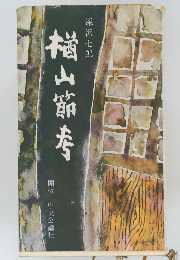 深沢七郎
楢山節考
中央公論社